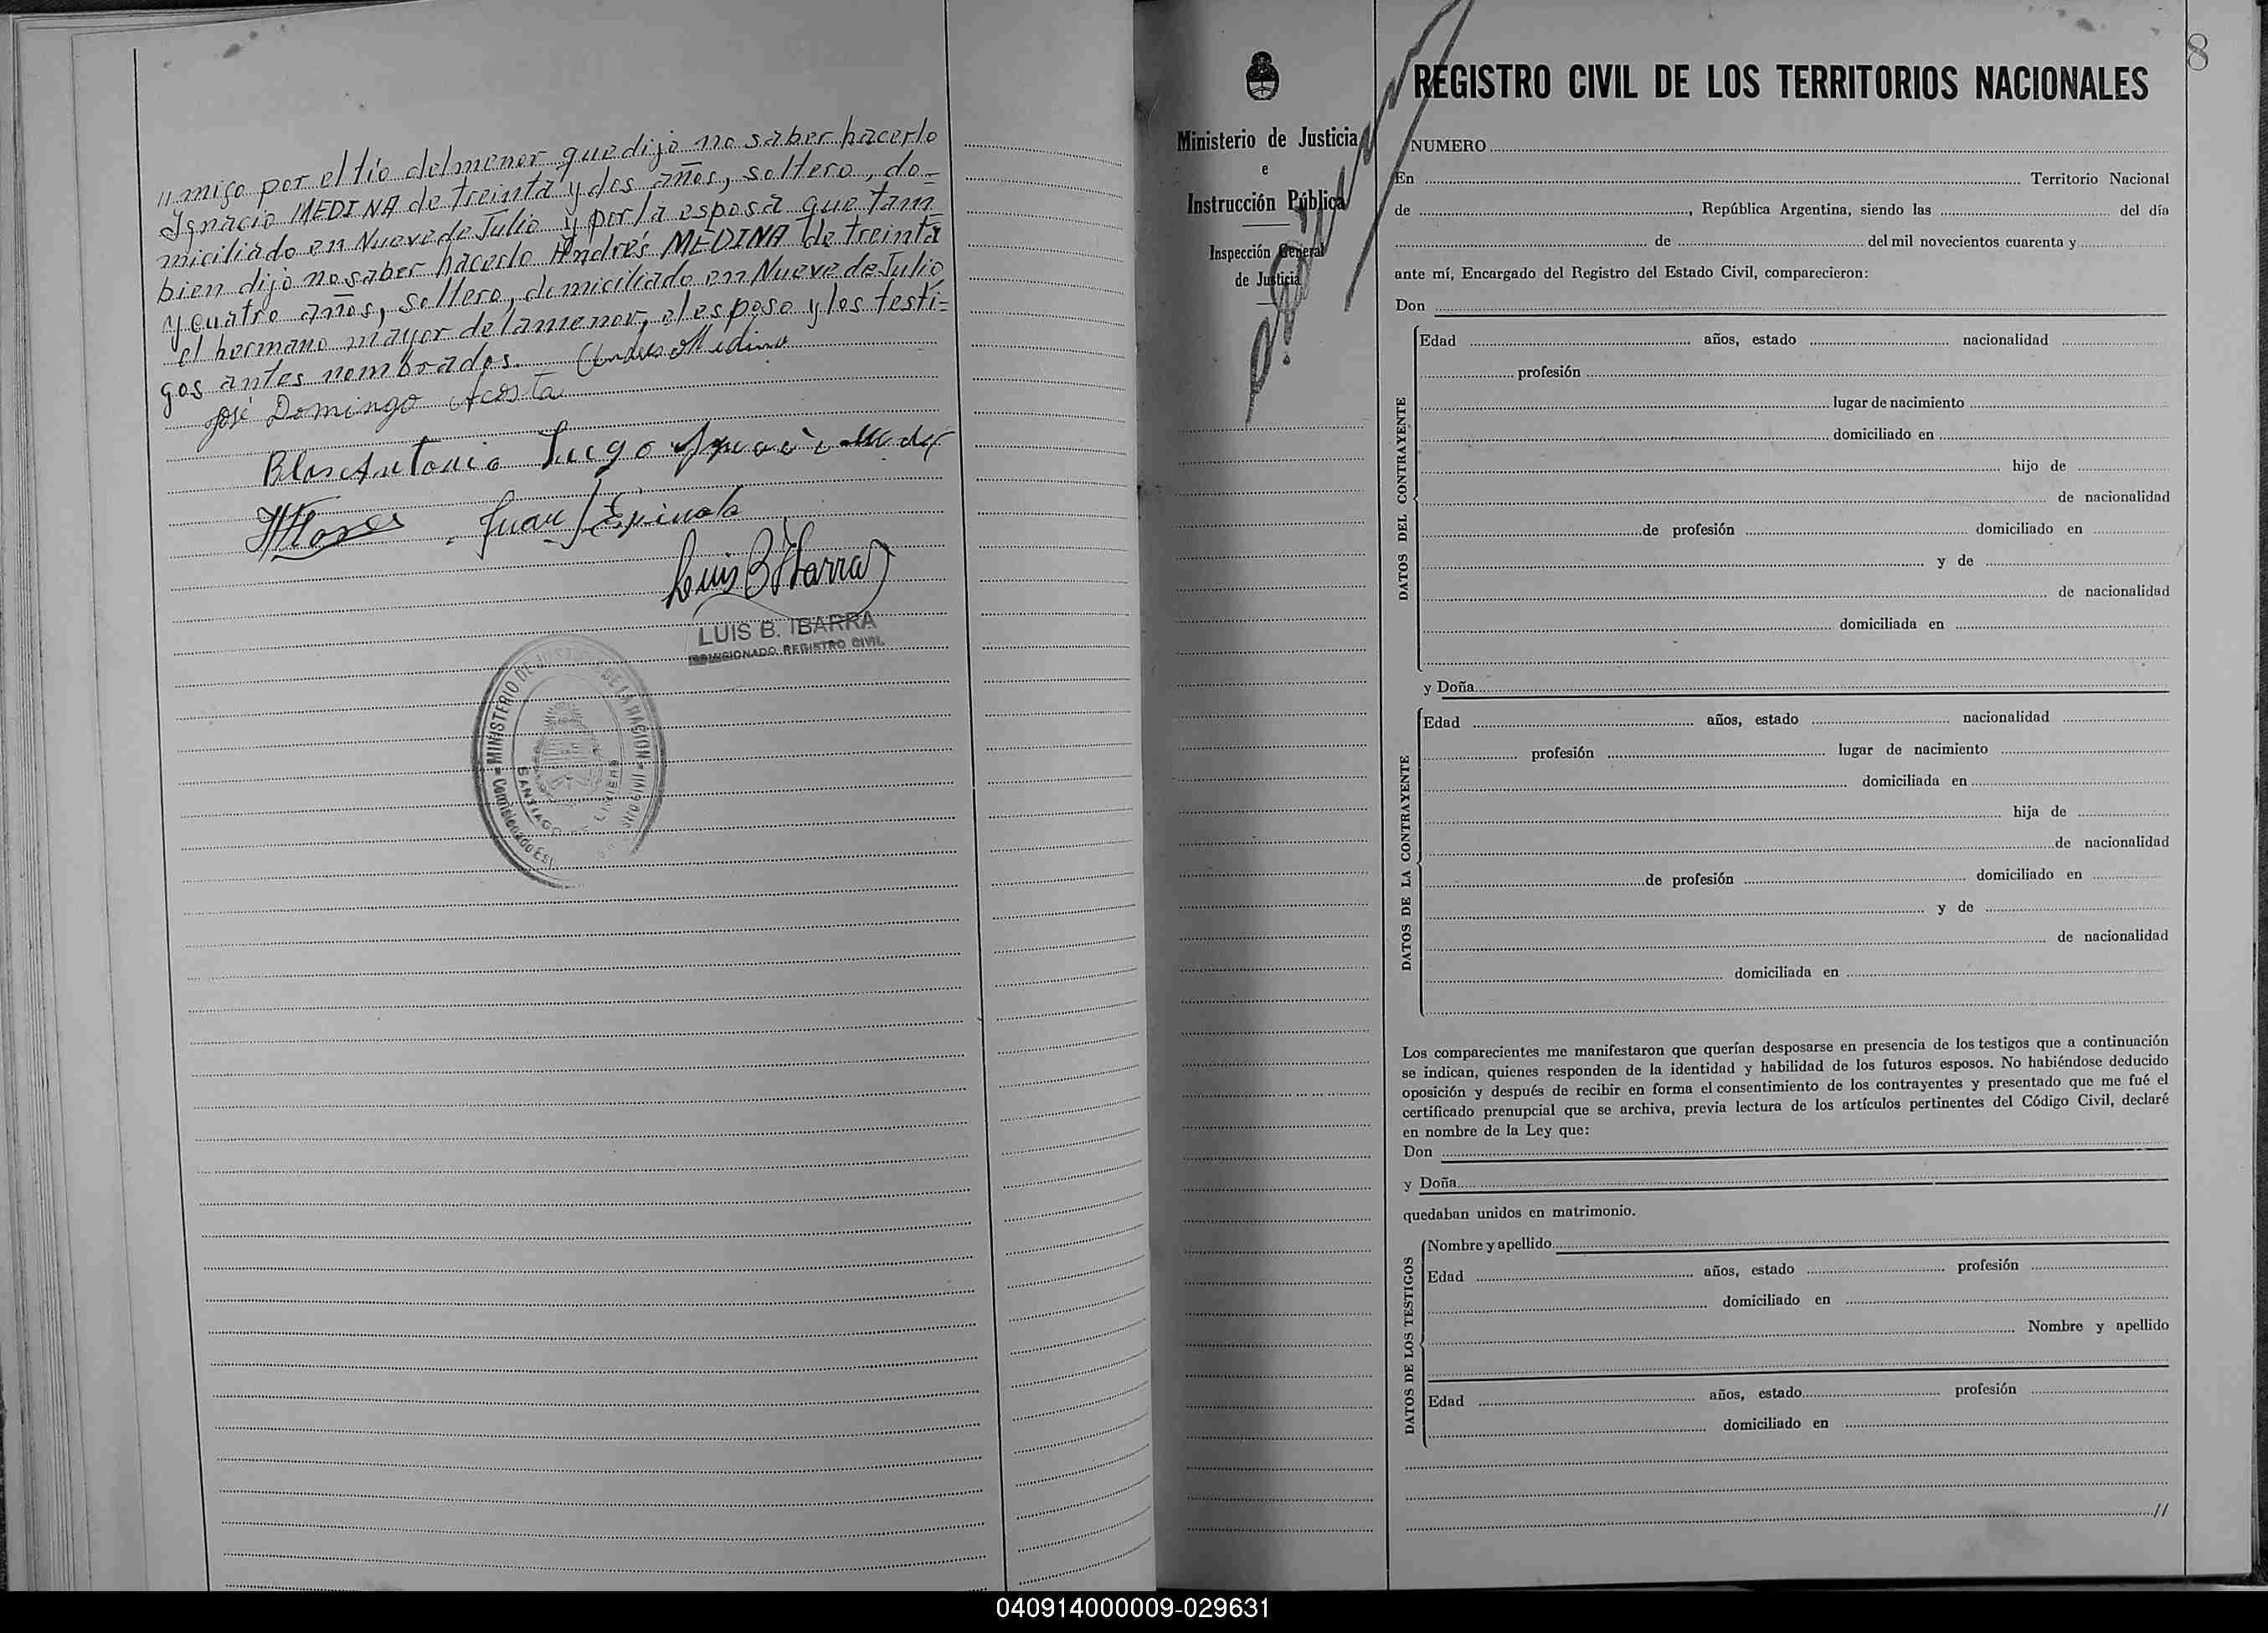 //migo por el tío del menor que dijo no saber hacerlo
Ignacio MEDINA de treinta y dos años, soltero, do=
miciliado en Nueve de Julio y por la esposa que tam
bien dijo no saber hacerlo Andrés MEDINA de treinta
y cuatro años, soltero, domiciliado en Nueve de Julio
el hermano mayor de la menor, el esposo y los testi=
gos antes nombrados. Andres Medina
José Domingo Acosta
Blas Antonio Lugo Ignacio
Flores Juan Espinola
Luis B Ibarra
LUIS B. IBARRA
COMISIONADO REGISTRO CIVIL
MINISTERIO DE JUSTICIA DE LA NACION
SANTIAGO DE LINIERS
8
Ministerio de Justicia
e
Instrucción Pública
Inspección General
de Justicia
REGISTRO CIVIL DE LOS TERRITORIOS NACIONALES
NUMERO
En Territorio Nacional
de , República Argentina, siendo las del día
de del mil novecientos cuarenta y
ante mí, Encargado del Registro del Estado Civil, comparecieron:
Don
DATOS DEL CONTRAYENTE
Edad años, estado nacionalidad
profesión
lugar de nacimiento
domiciliado en
hijo de
de nacionalidad
de profesión domiciliado en
y de
de nacionalidad
domiciliada en
y Doña
DATOS DE LA CONTRAYENTE
Edad años, estado nacionalidad
profesión lugar de nacimiento
domiciliada en
hija de
de nacionalidad
de profesión domiciliado en
y de
de nacionalidad
domiciliada en
Los comparecientes me manifestaron que querían desposarse en presencia de los testigos que a continuación
se indican, quienes responden de la identidad y habilidad de los futuros esposos. No habiéndose deducido
oposición y después de recibir en forma el consentimiento de los contrayentes y presentado que me fué el
certificado prenupcial que se archiva, previa lectura de los artículos pertinentes del Código Civil, declaré
en nombre de la Ley que:
Don
y Doña
quedaban unidos en matrimonio.
DATOS DE LOS TESTIGOS
Nombre y apellido
Edad años, estado profesión
domiciliado en
Nombre y apellido
Edad años, estado profesión
domiciliado en
//
040914000009-029631